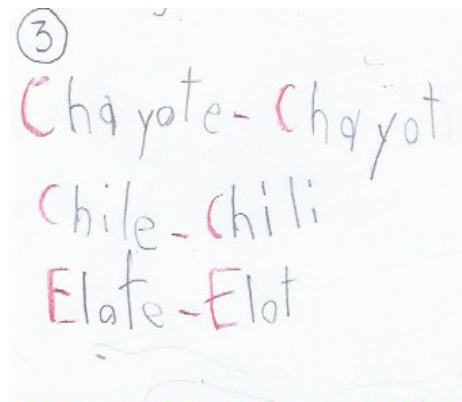 3
Chayote - Chayot
Chile - Chili
Elote - Elot